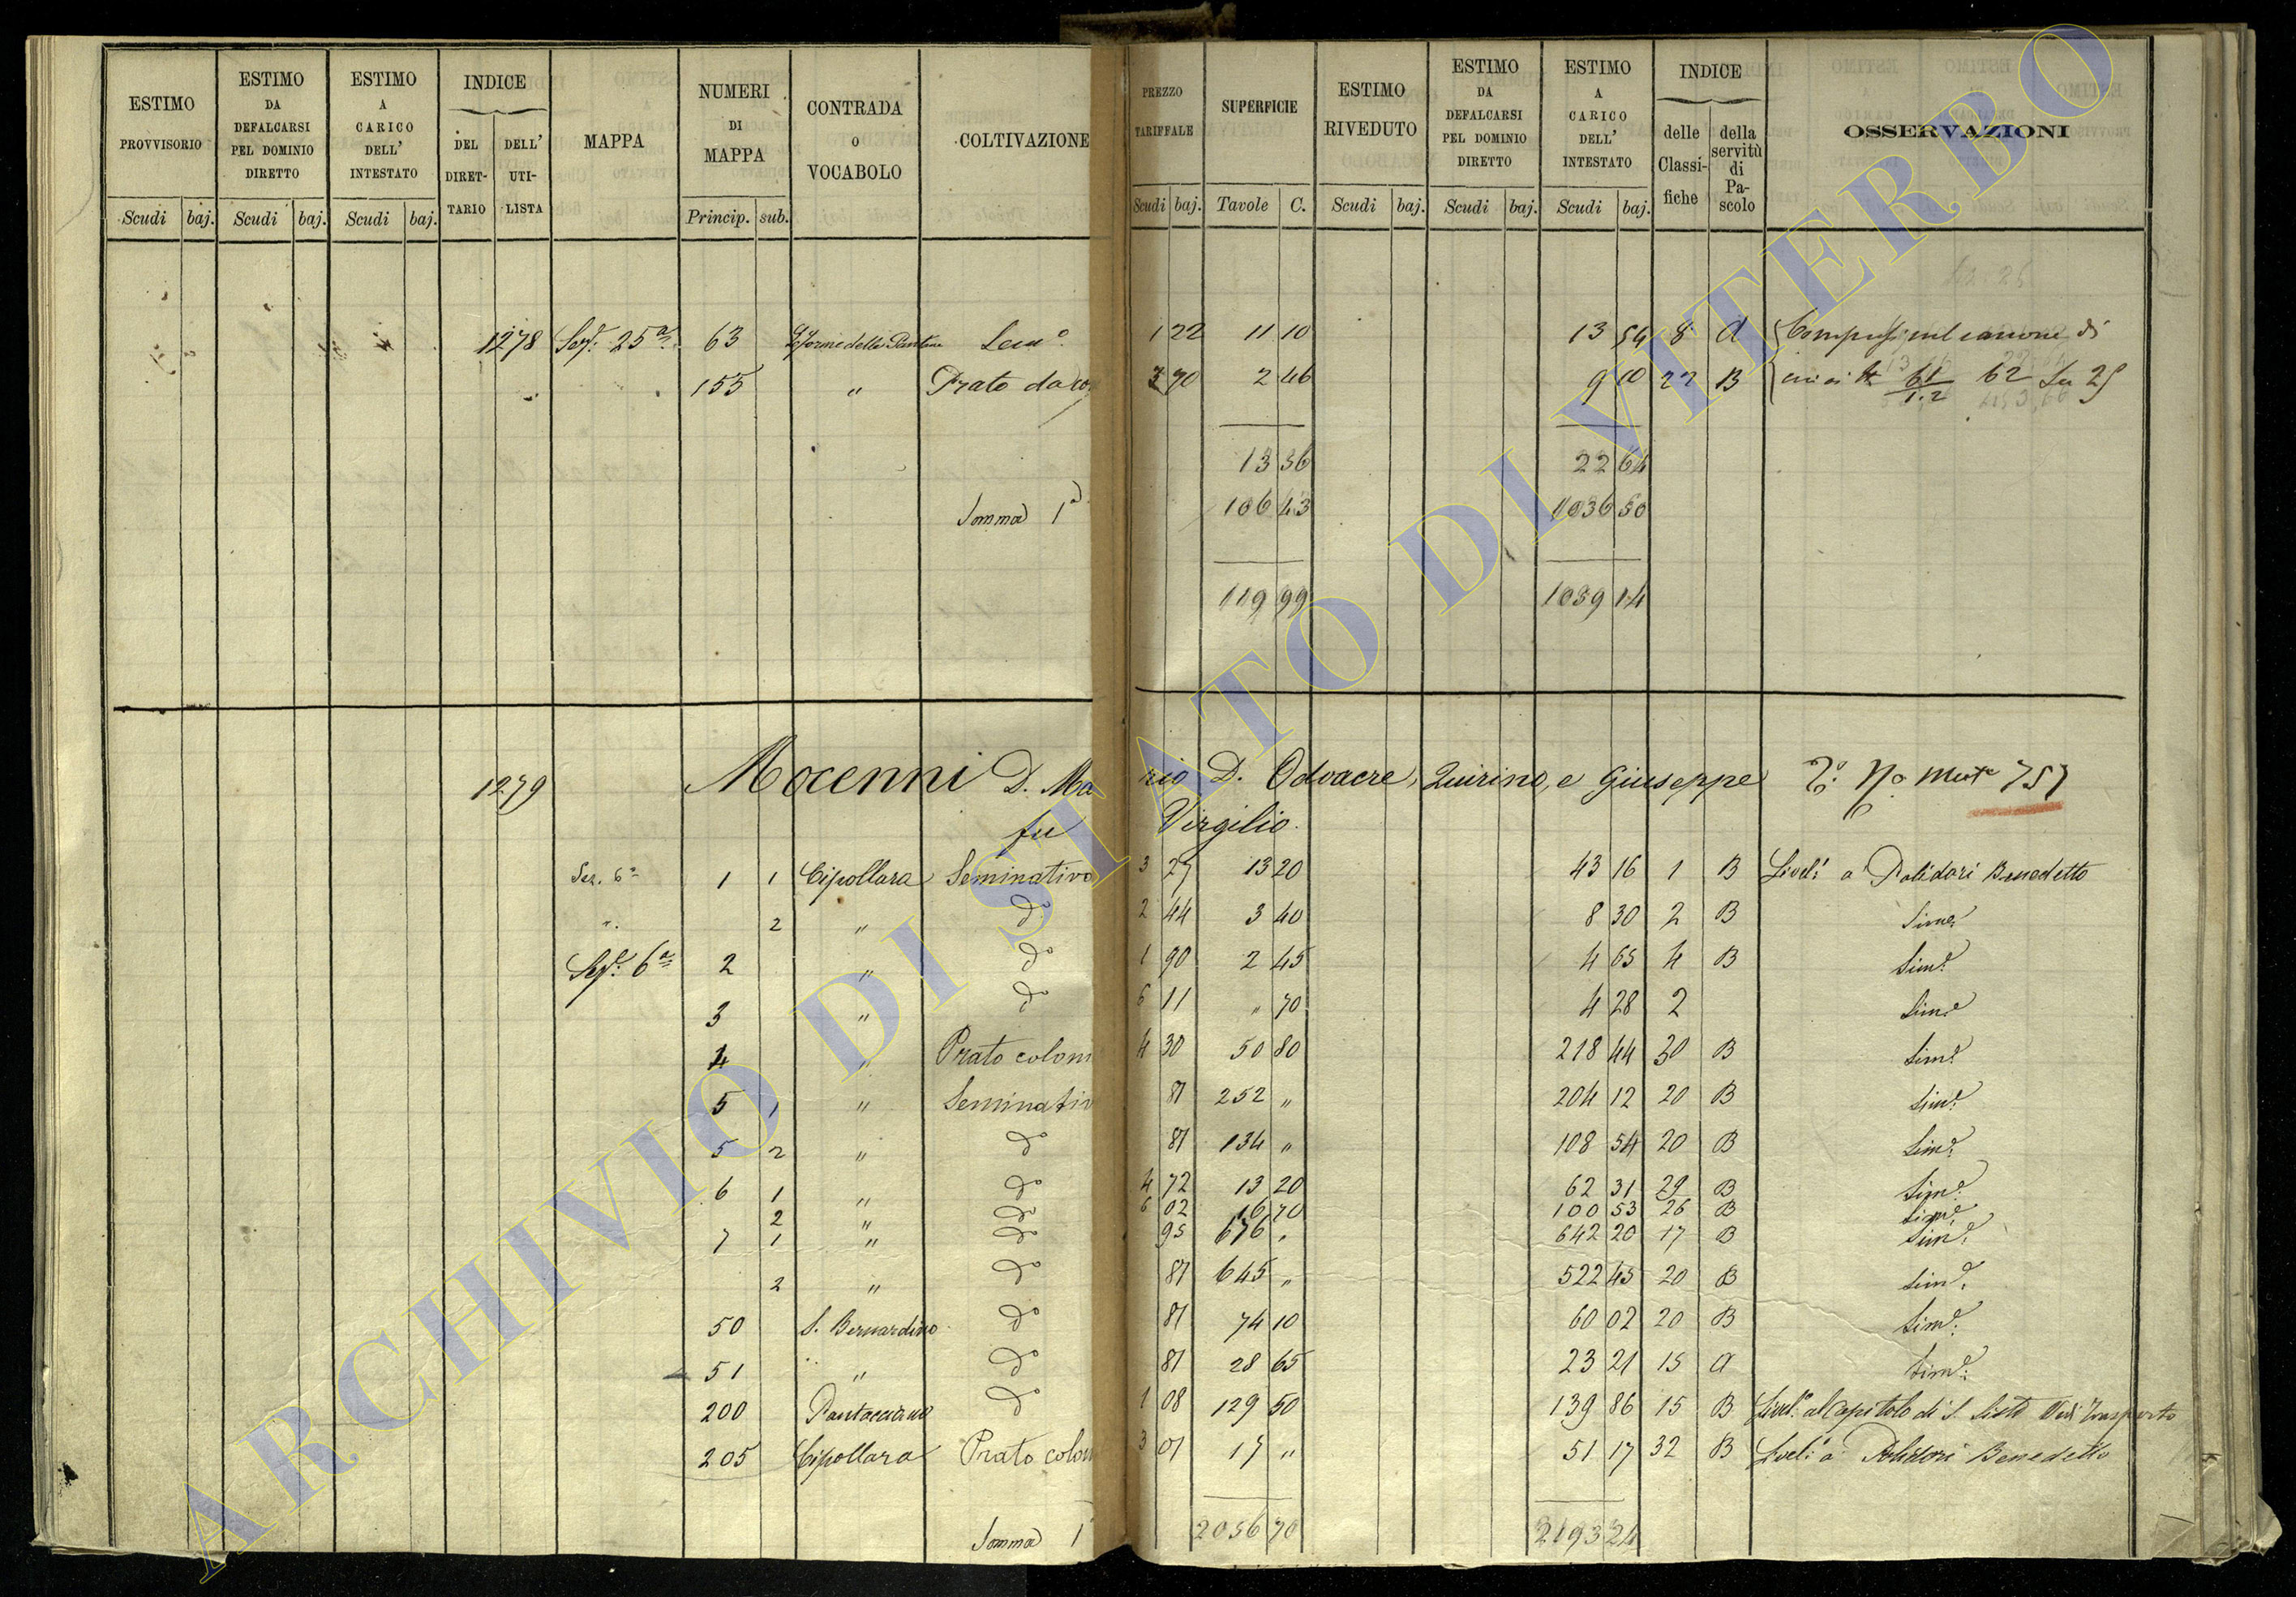 ESTIMO PROVVISORIO | ESTIMO DA DEFALCARSI PEL DOMINIO DIRETTO | ESTIMO A CARICO DELL' INTESTATO | INDICE DEL DIRETTARIO | DELL' UTILISTA | MAPPA | NUMERI DI MAPPA | CONTRADA O VOCABOLO | COLTIVAZIONE | PREZZO TARIFFALE | SUPERFICIE | ESTIMO RIVEDUTO | ESTIMO DA DEFALCARSI PEL DOMINIO DIRETTO | ESTIMO A CARICO DELL' INTESTATO | INDICE delle Classifiche | della servitù di Pascolo | OSSERVAZIONI
Scudi baj. Scudi baj. Scudi baj. Princip. sub. Scudi baj. Tavole C. Scudi baj. Scudi baj. Scudi baj.
1278 Sez. 25a 63 Sem.o 1 22 11 10 13 54 8 A di
155 " Prato da 3 70 2 46 9 10 22 B 62
13 56 22 64
Somma 1a 106 43 1036 50
119 99 1059 14
1279 Mocenni D. Mario D. Odoacre, Quirino, e Giuseppe 757
fu Virgilio.
Sez. 6a 1 1 Cipollara Seminativo 3 27 13 20 43 16 1 B Livel.i a Polidori Benedetto
". 2 " do 2 44 3 40 8 30 2 B Sime
Sez. 6a 2 " do 1 90 2 45 4 65 4 B Sime
3 " do 6 11 " 70 4 28 2 Sime
4 " Prato coloni 4 30 50 80 218 44 30 B Sime
5 1 " Seminativ 81 252 " 204 12 20 B Sime
5 2 " do 81 134 " 108 54 20 B Sime
6 1 " do 4 72 13 20 62 31 29 B Sime
2 " do 6 02 16 70 100 53 26 B Sime
7 1 " do 95 676 " 642 20 17 B Sime
2 " do 81 645 " 522 45 20 B Sime
50 S. Bernardino do 81 74 10 60 02 20 B Sime
51 " do 81 28 65 23 21 15 A Sime
200 Pantacciano do 1 08 129 50 139 86 15 B Livel.o al Capitolo di S. Sisto Vedi Trasporto
205 Cipollara Prato colon 3 01 17 " 51 17 32 B Livel.i a Polidori Benedetto
Somma 1 2056 70 2193 24
ARCHIVIO DI STATO DI VITERBO